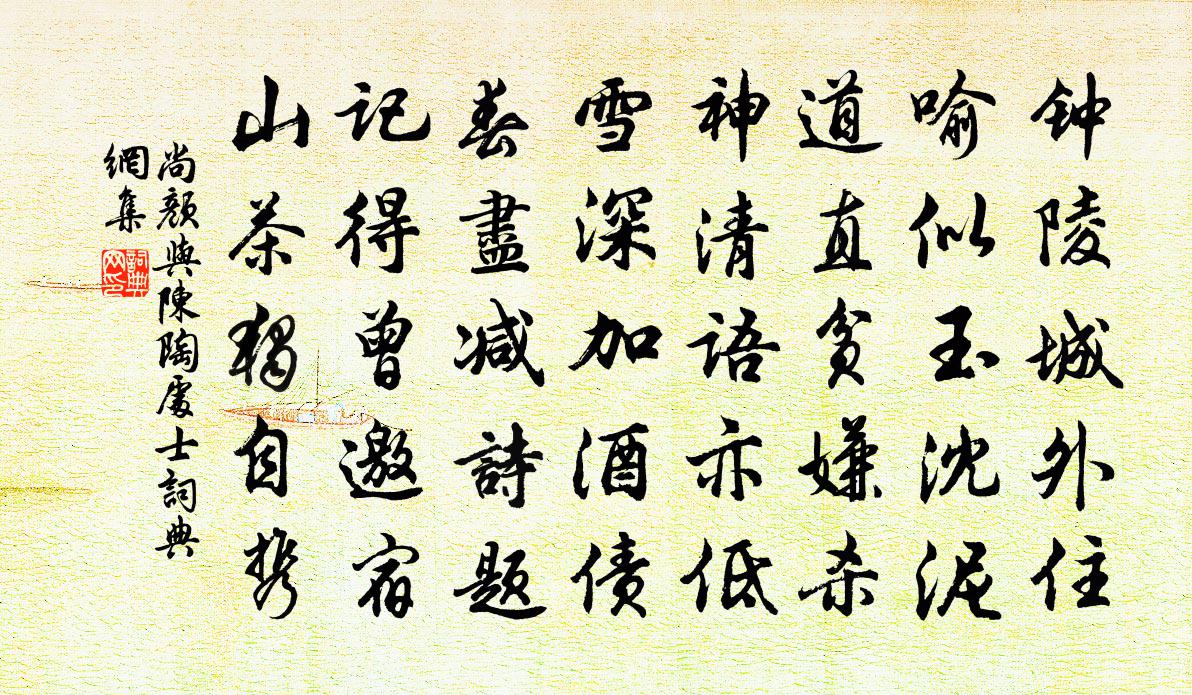 钟陵城外住
喻似玉沈泥
道直贫嫌杀
神清语亦低
雪深加酒债
春盡减詩题
记得曾邀宿
山茶独自携
尚顏與陳陶處士詞典
網集
詞典
网印